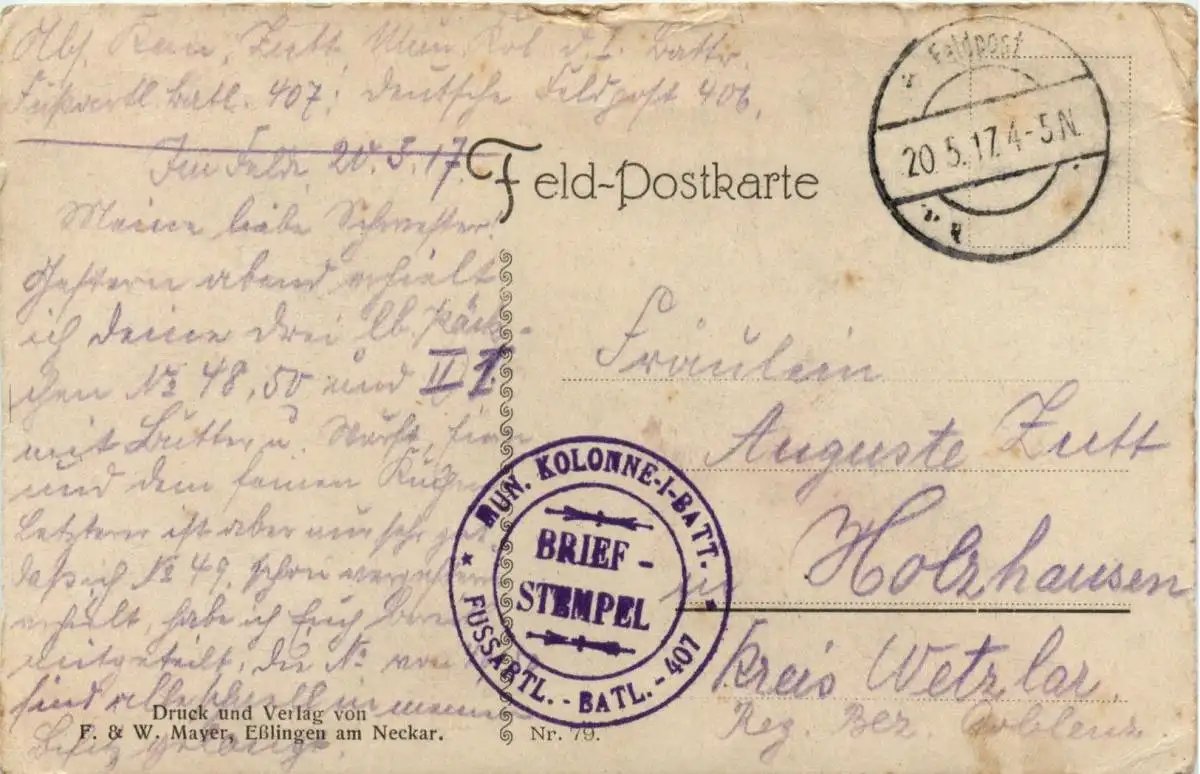 Abs. Kan. Zutt Mun. Kol. d. I. Battr.
Fußartl. Batl. 407. Deutsche Feldpost 406.
Im Felde, 20.5.17.
Feld-Postkarte
Feldpost
20.5.17.4-5N.
Meine liebe Schwester!
Gestern abend erhielt
ich deine drei lb. Päck-
chen № 48, 50 und II 1
mit Butter u. Wurst,
und dem feinen Kuchen
Letzterer ist aber nur sehr
daß ich № 49, schon vorgestern
erhielt, habe ich Euch
mitgeteilt, die № von
sind alle in meinem
Besitz gelangt.
Fräulein
Auguste Zutt
in Holzhausen
Kreis Wetzlar
Reg. Bez. Coblenz
MUN. KOLONNE-I-BATT.
BRIEF-
STEMPEL
FUSSARTL.-BATL.-407
Druck und Verlag von
F. & W. Mayer, Eßlingen am Neckar.
Nr. 79.